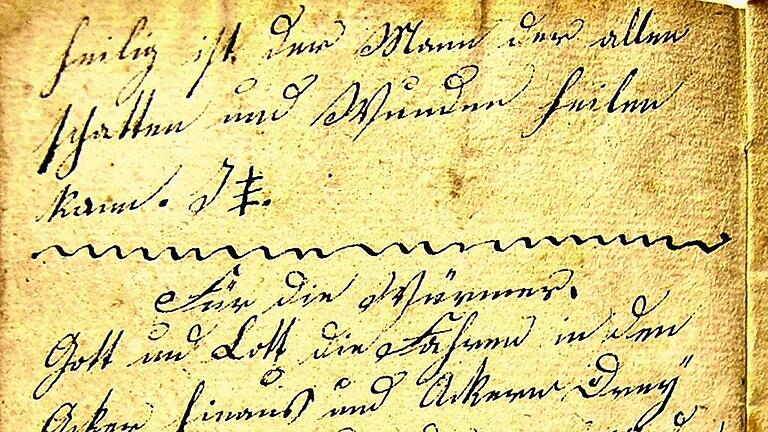 heilig ist der Mann der allen
schatten und Wunden heilen
kann. J ‡.
Für die Würmer.
Gott und Lott die Fahren in den
Acker hinaus und Ackern Drey"